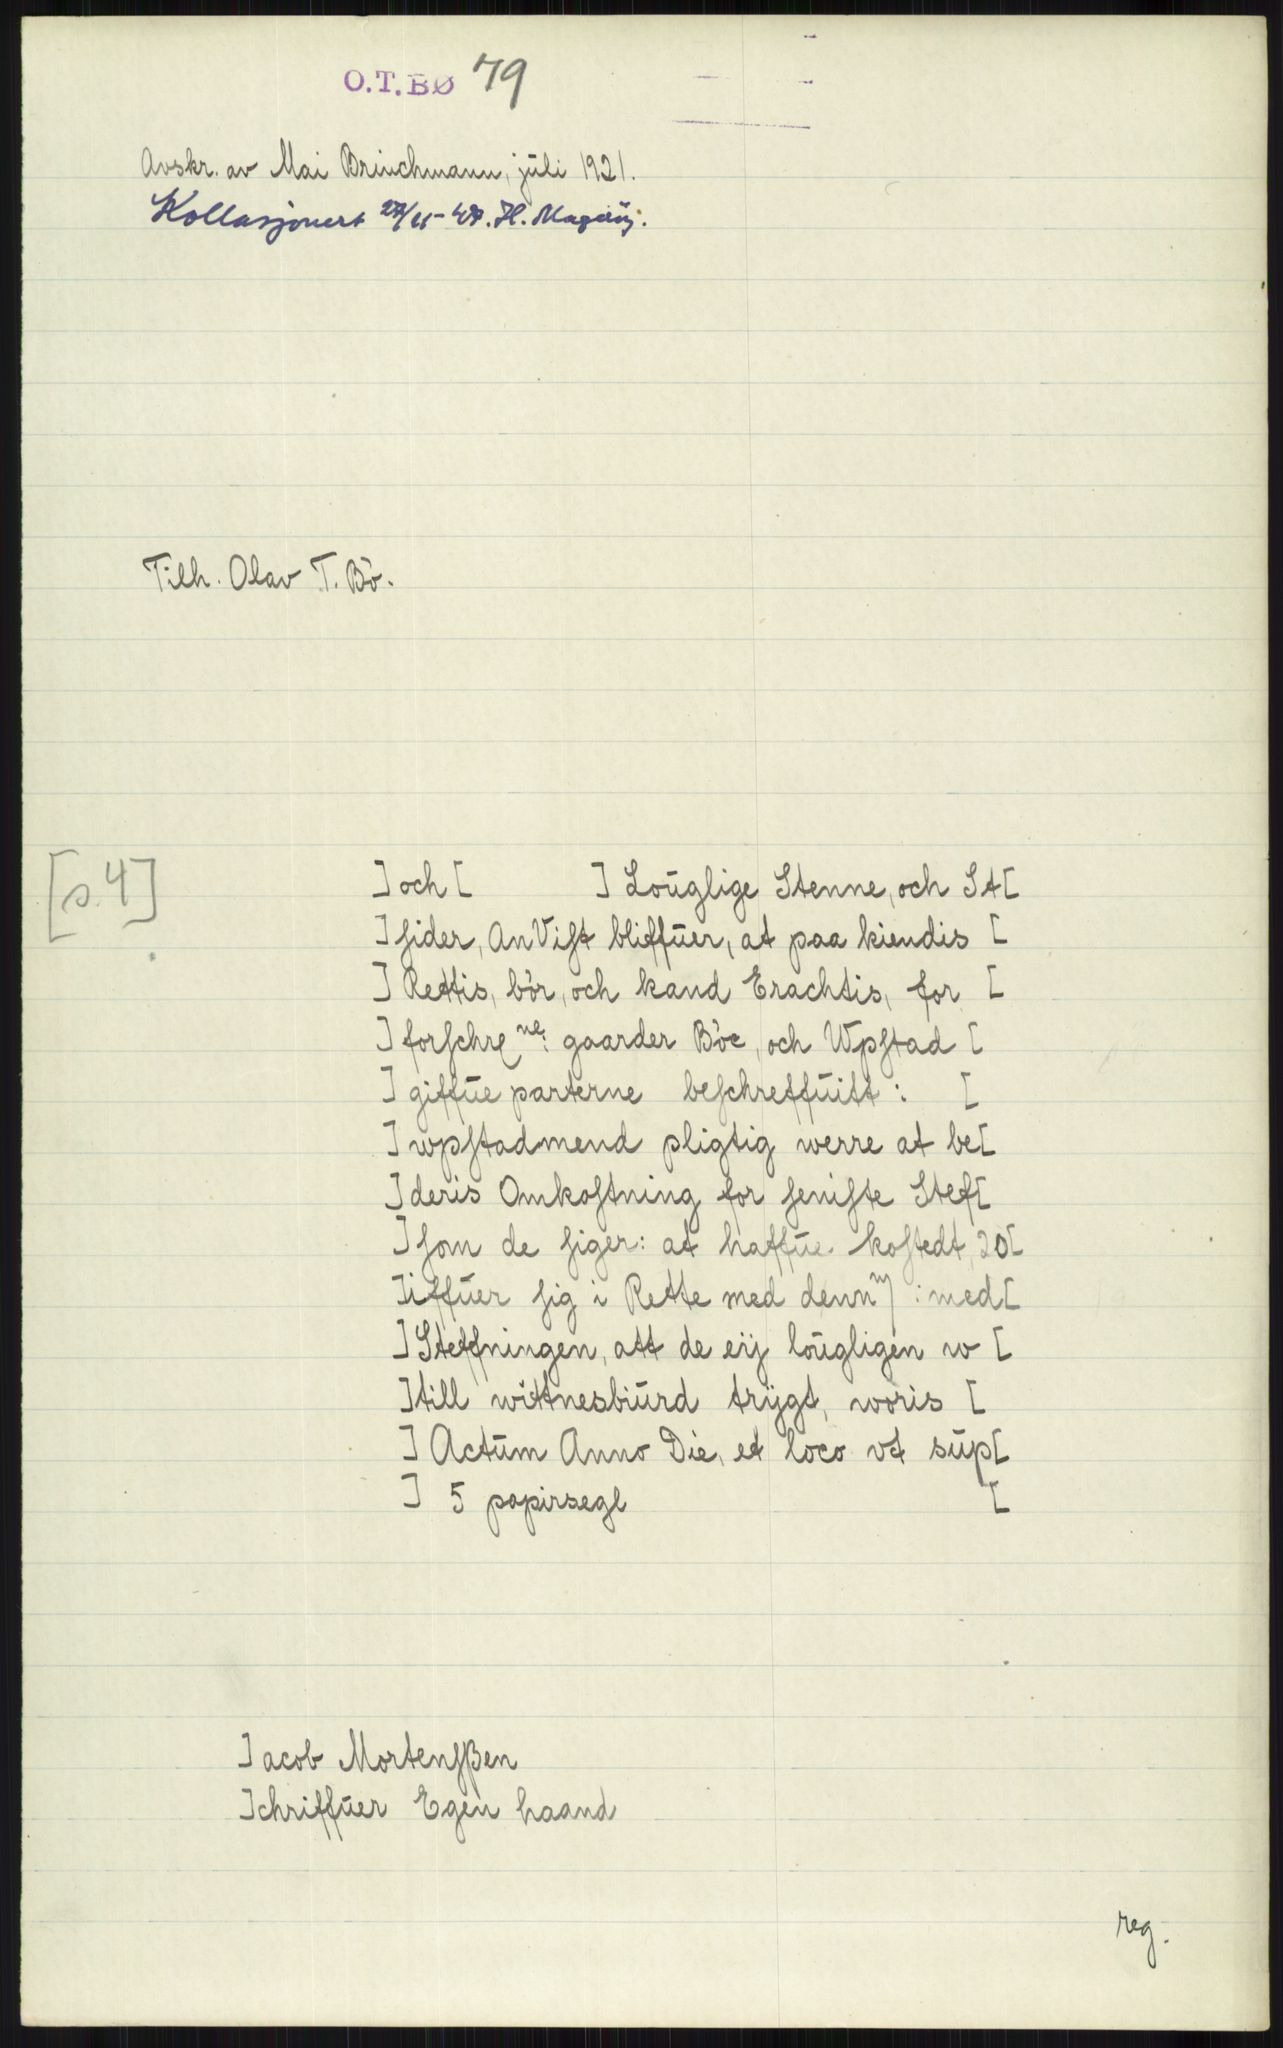 O.T.BØ 79
Avskr. av Mai Brinchmann, juli 1921.
Kollasjonert H.
Tilh. Olav T. Bö.
[s. 4]
] och [ ] Louglige Stenne, och St[
] sider, AnVist bliffuer, at paa kiendis [
] Rettis, bör, och kand Erachtis, for [
] forschre ne: gaarder Böe, och Wpstad [
] giffue parterne beschreffuitt : [
] wpstadmend pligtig werre at be[
] deris Omkostning for seniste Stef[
] som de siger: at haffue kostedt, 20[
]iffuer sig i Rette med denn : med[
] Steffningen, att de eij lougligen w [
] till wittnesbiurd trijgt, woris [
] Actum Anno Die, et loco vt sup[
] 5 papirsegl [
]acob Mortensßen
]chriffuer Egen haand
reg.